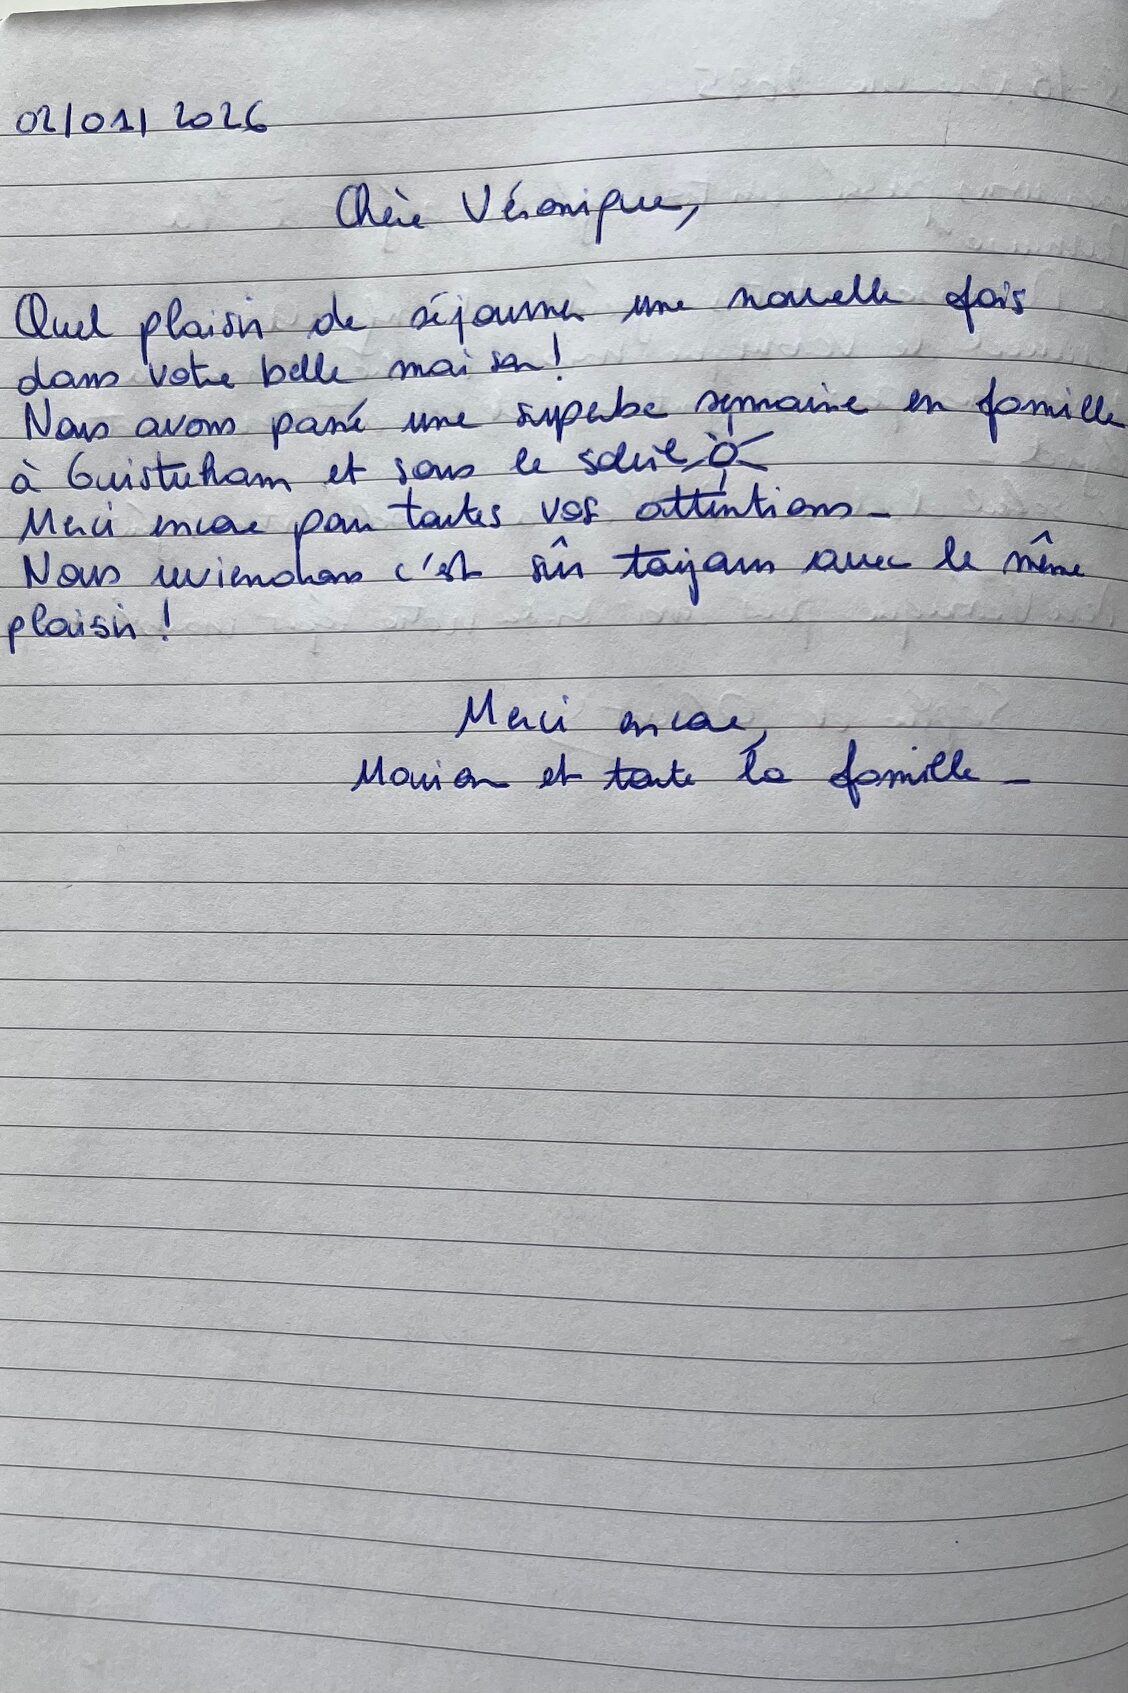 02/01/2026
Chère Véronique,
Quel plaisir de séjourner une nouvelle fois
dans votre belle maison !
Nous avons passé une superbe semaine en famille
à Ouistreham et sous le soleil
Merci encore pour toutes vos attentions_
Nous reviendrons c'est sûr toujours avec le même
plaisir !
Merci encore,
Marion et toute la famille_